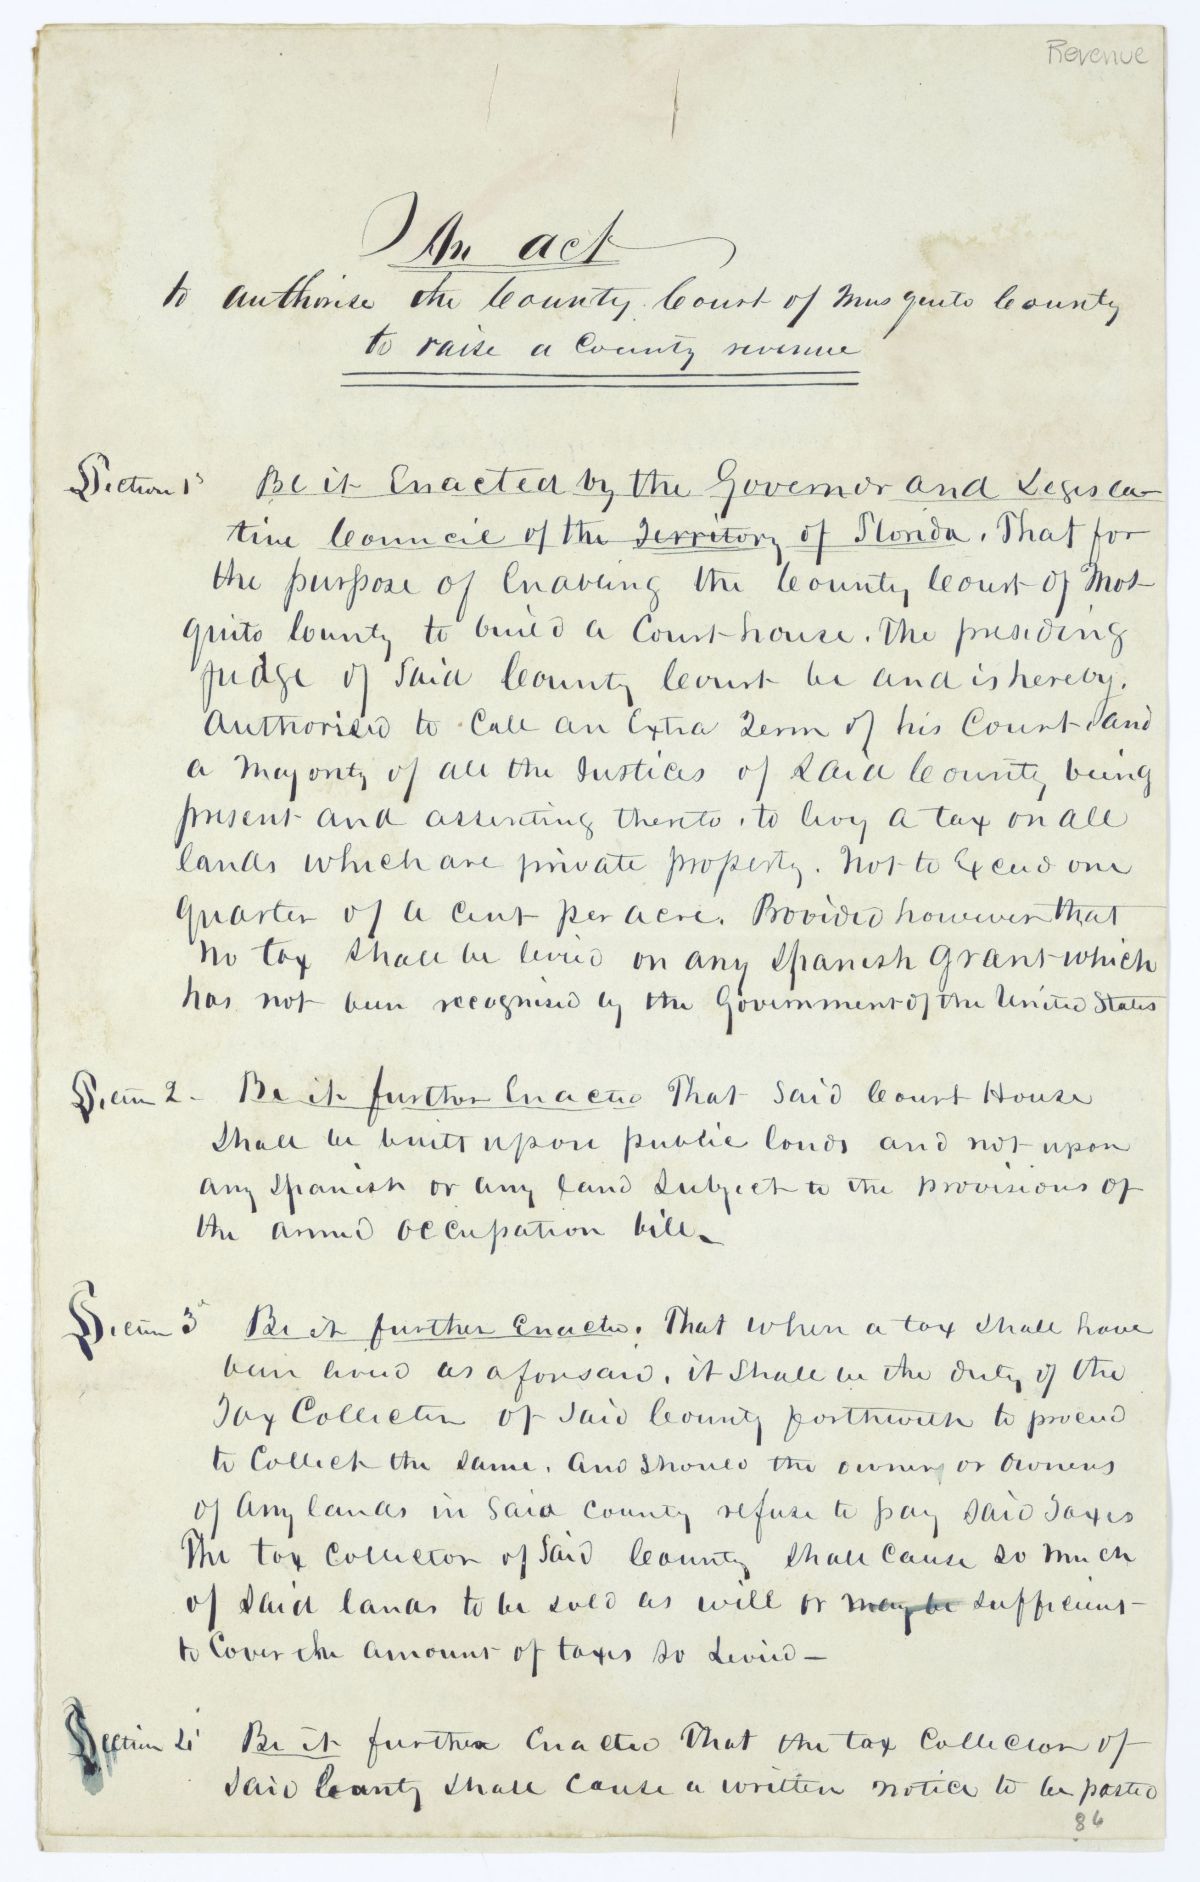 Revenue
An act
to authorise the County Court of Musquito County
to raise a County revenue
Section 1st Be it Enacted by the Governor and Legisla-
tive Council of the Territory of Florida. That for
the purpose of Enabling the County Court of Mos-
quito County to build a Court house. The presiding
judge of Said County Court be and is hereby.
authorised to Call an Extra Term of his Court, and
a majority of all the Justices of Said County being
present and assenting thereto, to levy a tax on all
lands which are private property. Not to Exceed one
quarter of a cent per acre. Provided however that
no tax shall be levied on any Spanish Grant which
has not been recognised by the Government of the United States
Section 2 - Be it further Enacted That Said Court House
Shall be built upon public lands and not upon
any Spanish or any land Subject to the provisions of
the armed occupation bill.-
Section 3d Be it further Enacted. That when a tax shall have
been levied as aforesaid, it Shall be the duty of the
Tax Collector of Said County forthwith to proceed
to Collect the Same. And Should the owner or owners
of any lands in Said County refuse to pay Said Taxes
The tax Collector of Said County Shall Cause so much
of Said lands to be sold as will or may be sufficient
to Cover the amount of taxes so Levied -
Section 4 Be it further Enacted That the tax Collector of
Said County Shall Cause a written notice to be posted
86